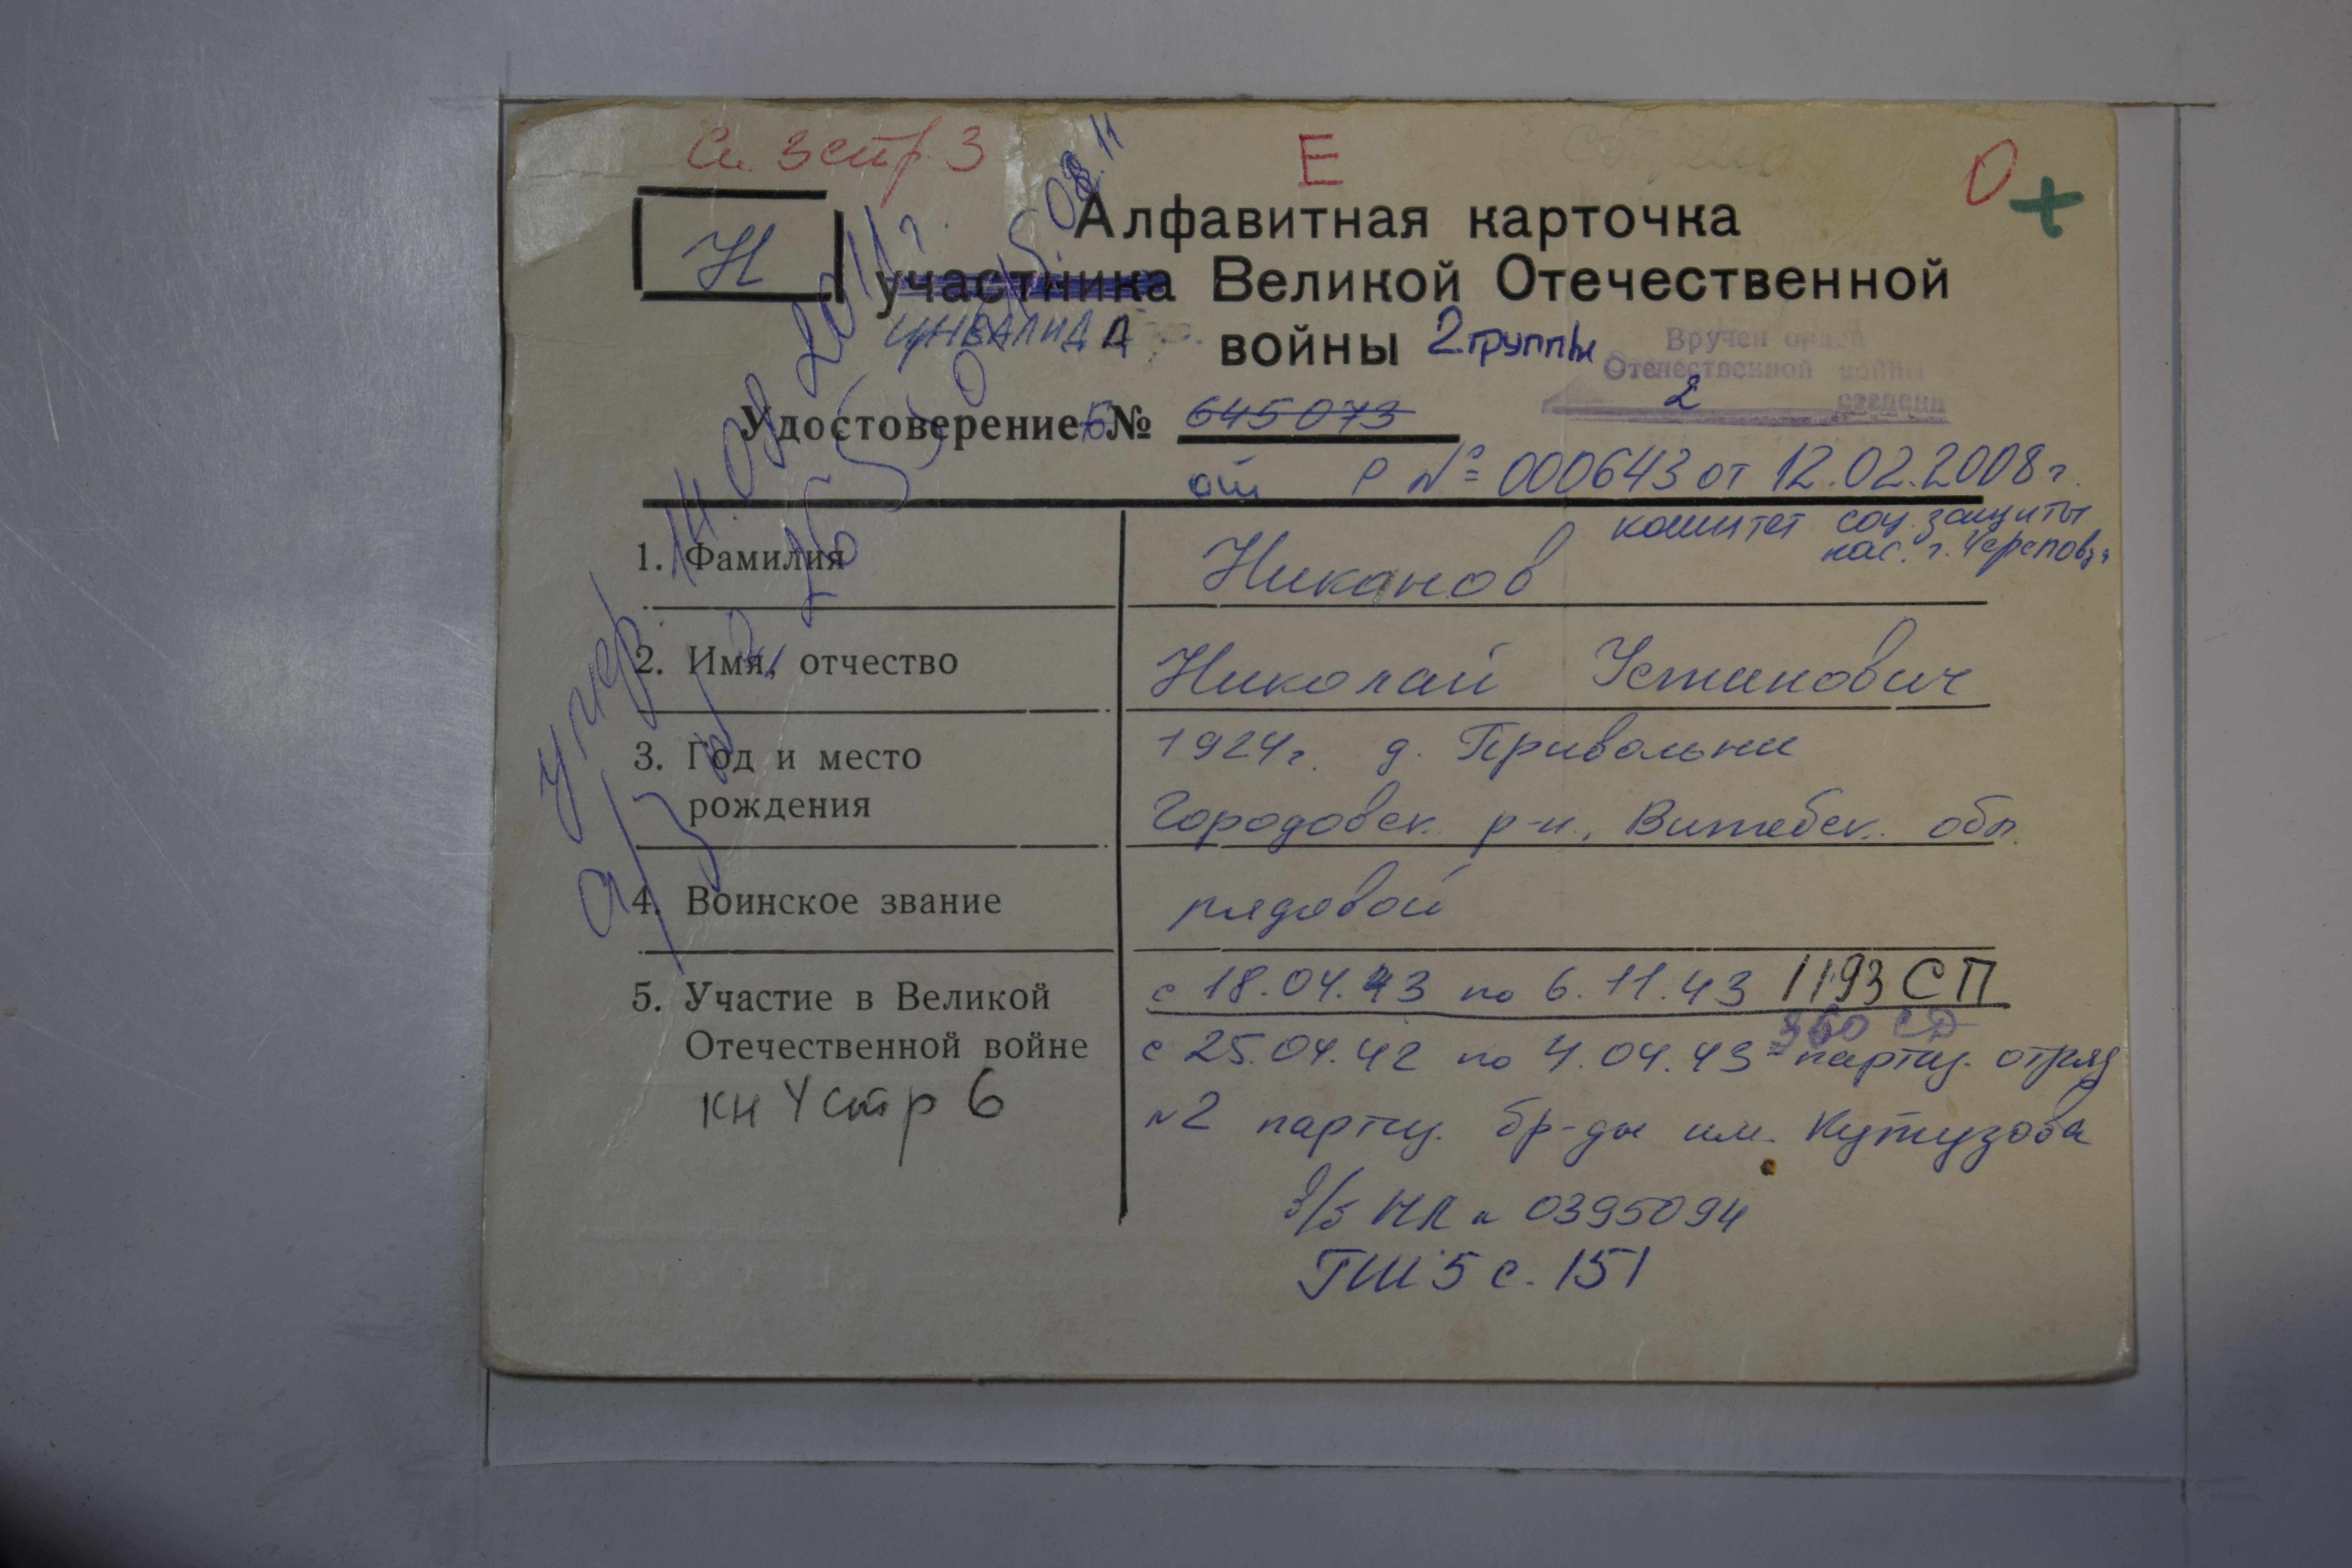 Сп. 3 стр. 3
Е
О +
Н
Алфавитная карточка
участника Великой Отечественной
инвалида войны 2 группы
Вручен орден
Отечественной войны
2 степени
Удостоверение Б № 645073
от Р № 000643 от 12.02.2008 г.
комитет соц. защиты
нас. г. Череповца
умер 14.08.2011 г.
а/з
1. Фамилия Никонов
2. Имя, отчество Николай Устинович
3. Год и место 1924 г. д. Привольни
рождения Городовск. р-н, Витебск. обл.
4. Воинское звание рядовой
5. Участие в Великой с 18.04.43 по 6.11.43 1193 СП
360 СД
Отечественной войне с 25.04.42 по 4.04.43 - партиз. отряд
кн 4 стр 6
№2 партиз. бр-ды им. Кутузова
в/б НЛ № 0395094
ГШ 5 с. 151